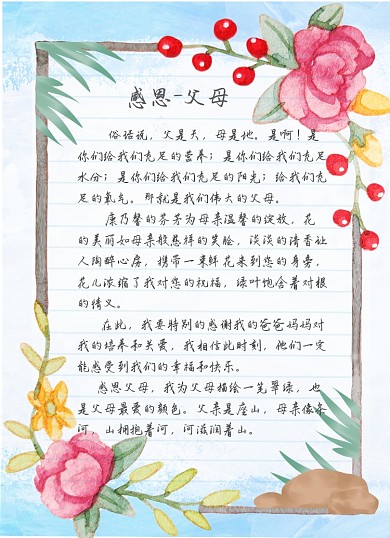 感恩-父母
俗话说，父是天，母是地。是啊！是
你们给我们充足的营养；是你们给我们充足
水分；是你们给我们充足的阳光；给我们充
足的氧气。那就是我们伟大的父母。
康乃馨的芬芳为母亲温馨的绽放，花
的美丽如母亲般慈祥的笑脸，淡淡的清香让
人陶醉心房，携带一束鲜花来到您的身旁，
花儿浓缩了我对您的祝福，绿叶饱含着对根
的情义。
在此，我要特别的感谢我的爸爸妈妈对
我的培养和关爱，我相信此时刻，他们一定
能感受到我们的幸福和快乐。
感恩父母，我为父母描绘一笔翠绿，也
是父母最爱的颜色。父亲是座山，母亲像条
河，山拥抱着河，河滋润着山。